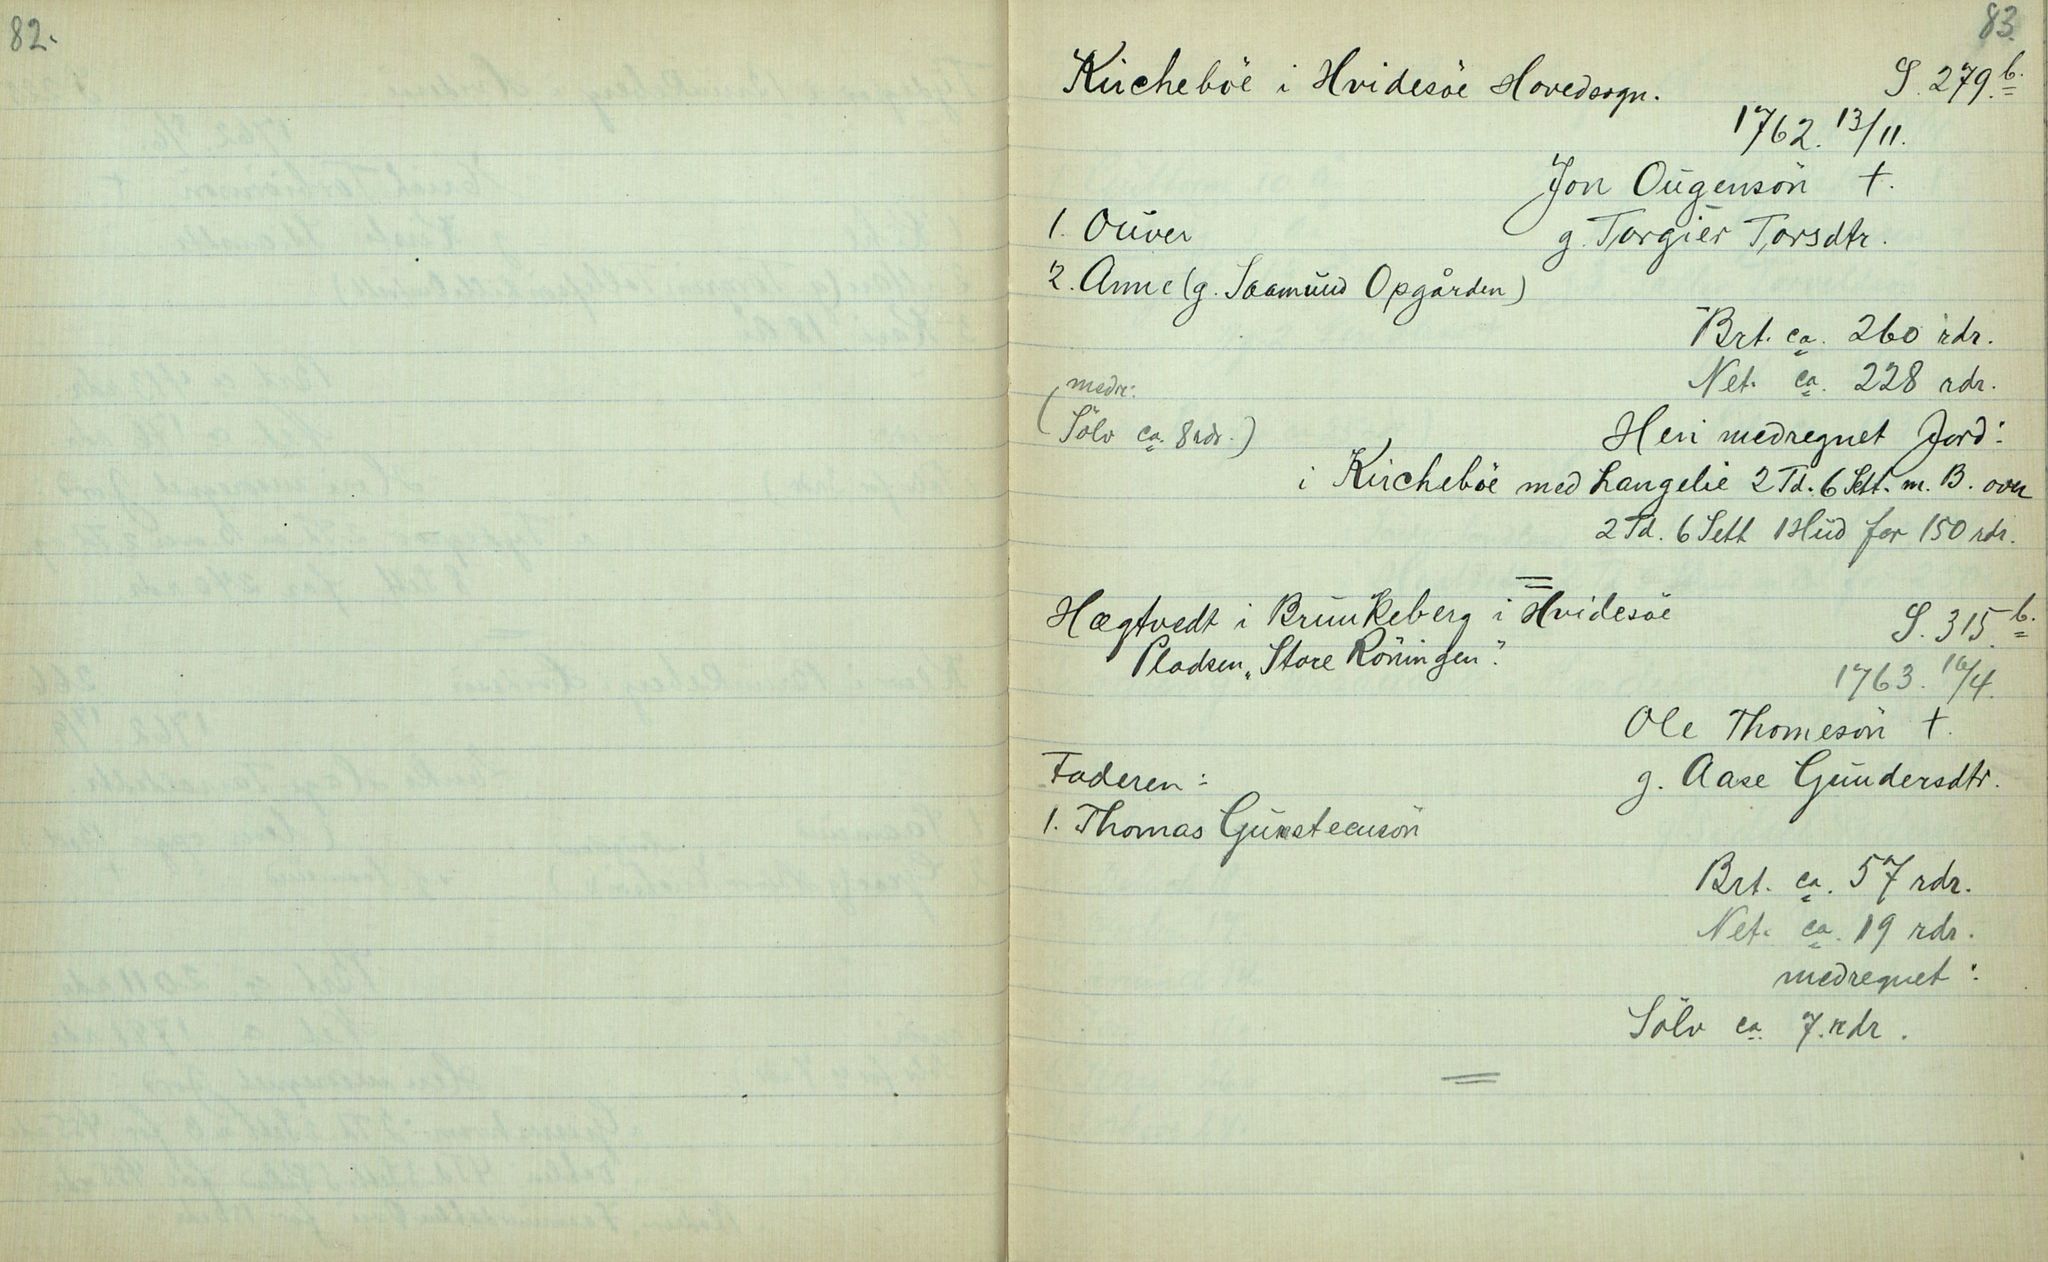 82.
83.
Kircheböe i Hvidesöe Hovedsogn. S. 279.b.
1762. 13/11.
Jon Ougensön †.
1. Ouver g. Torgier Torsdtr.
2. Anne (g. Saamund Opgården)
Brt. ca. 260 rdr.
Net. ca. 228 rdr.
(medr:
Sölv ca. 8 rdr.) Heri medregnet Jord:
i Kircheböe med Langelie 2 Td. 6 Sett. m. B. over
2 Td. 6 Sett 1 Hud for 150 rdr.
Hægtvedt i Brunkeberg i Hvidesöe S. 315.b.
Pladsen „Store Röningen". 1763. 16/4.
Ole Thomesön †.
Faderen: g. Aase Gundersdtr.
1. Thomas Gunsteensön
Brt. ca. 57 rdr.
Net. ca. 19 rdr.
medregnet:
Sölv ca. 7. rdr.